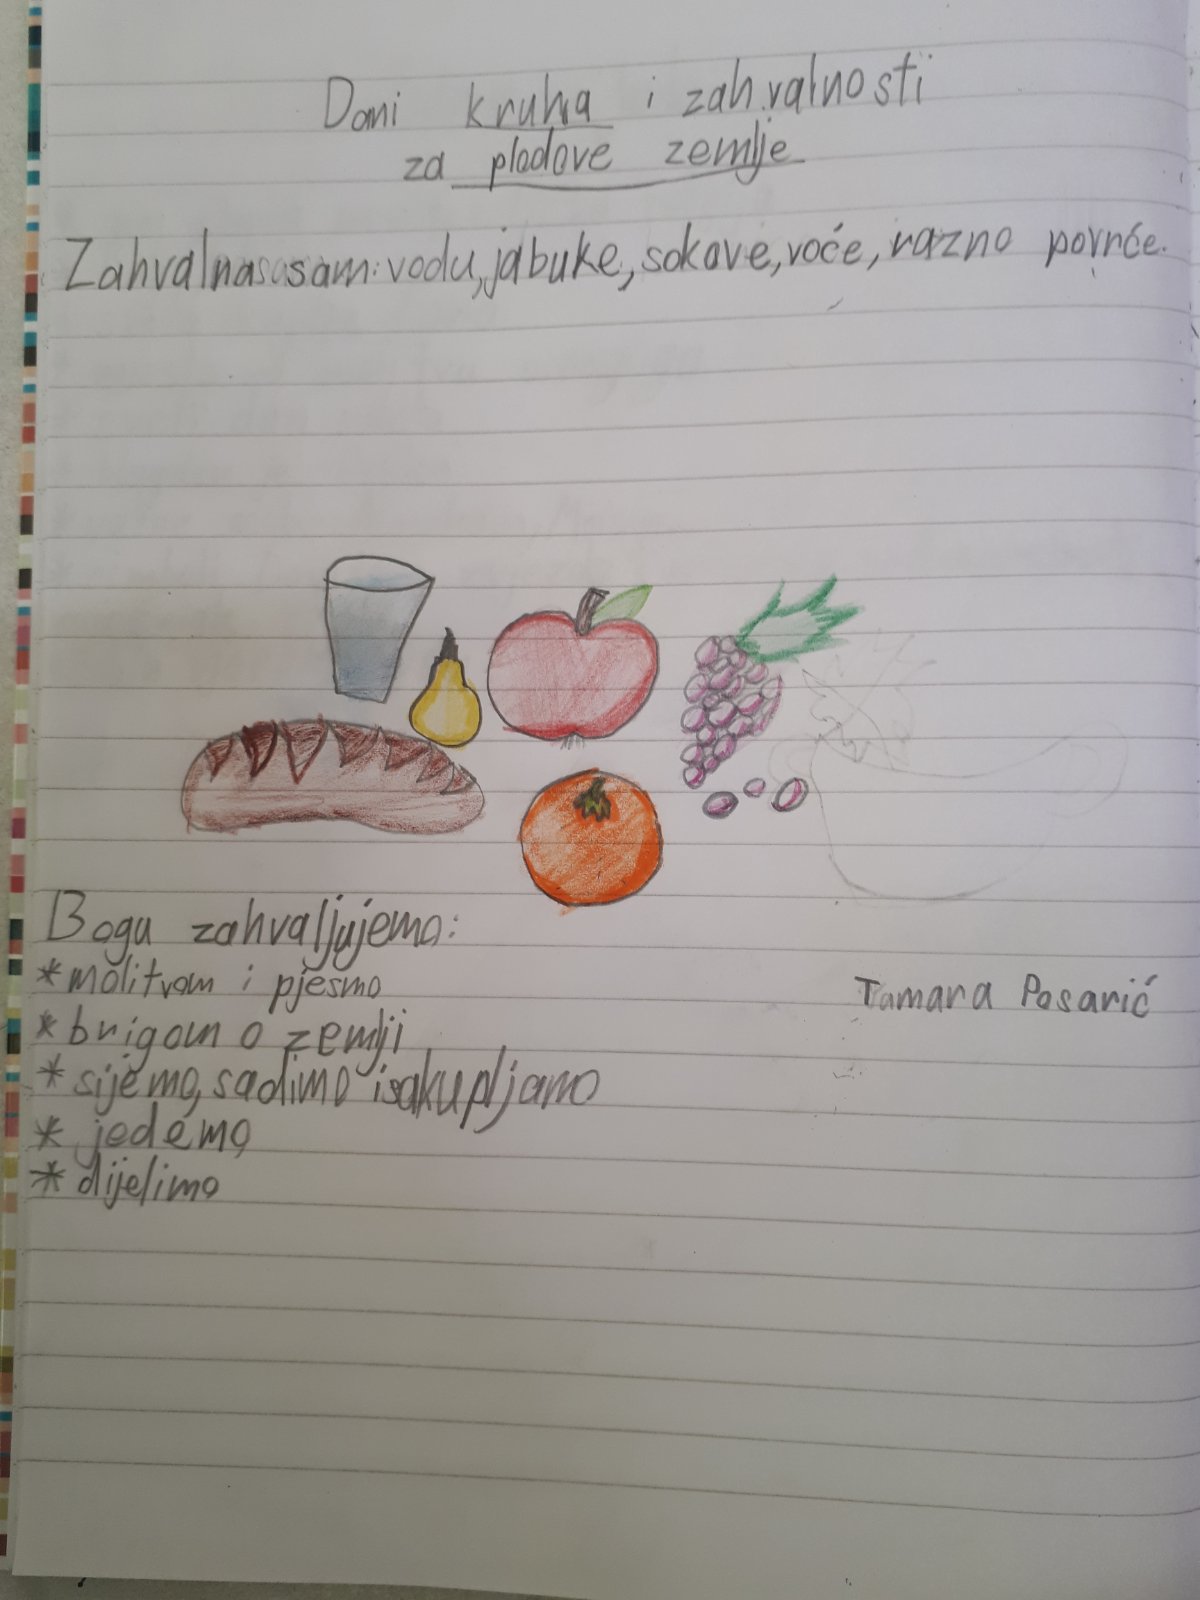 Dani kruha i zahvalnosti
za plodove zemlje
Zahvalna sam: vodu, jabuke, sokove, voće, razno povrće.
Bogu zahvaljujemo:
* molitvom i pjesmo
* brigom o zemlji
Tamara Posarić
* sijemo, sadimo i sakupljamo
* jedemo
* dijelimo